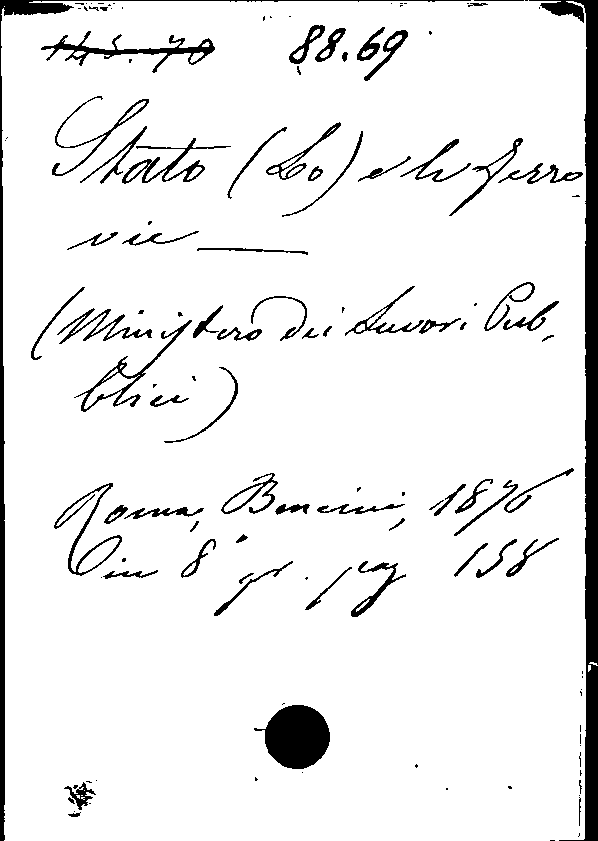 145.70 88.69
Stato (Lo) e le ferro
vie
(Ministero dei Lavori Pub-
blici)
Roma, Bencini, 1876
in 8° gr. pag 158